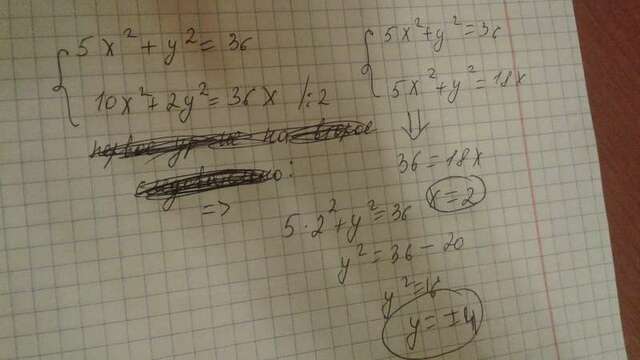 5x² + y² = 36
10x² + 2y² = 36x /:2
=>
5x² + y² = 36
5x² + y² = 18x
⇓
36 = 18x
x = 2
5 · 2² + y² = 36
y² = 36 - 20
y² = 16
y = ±4